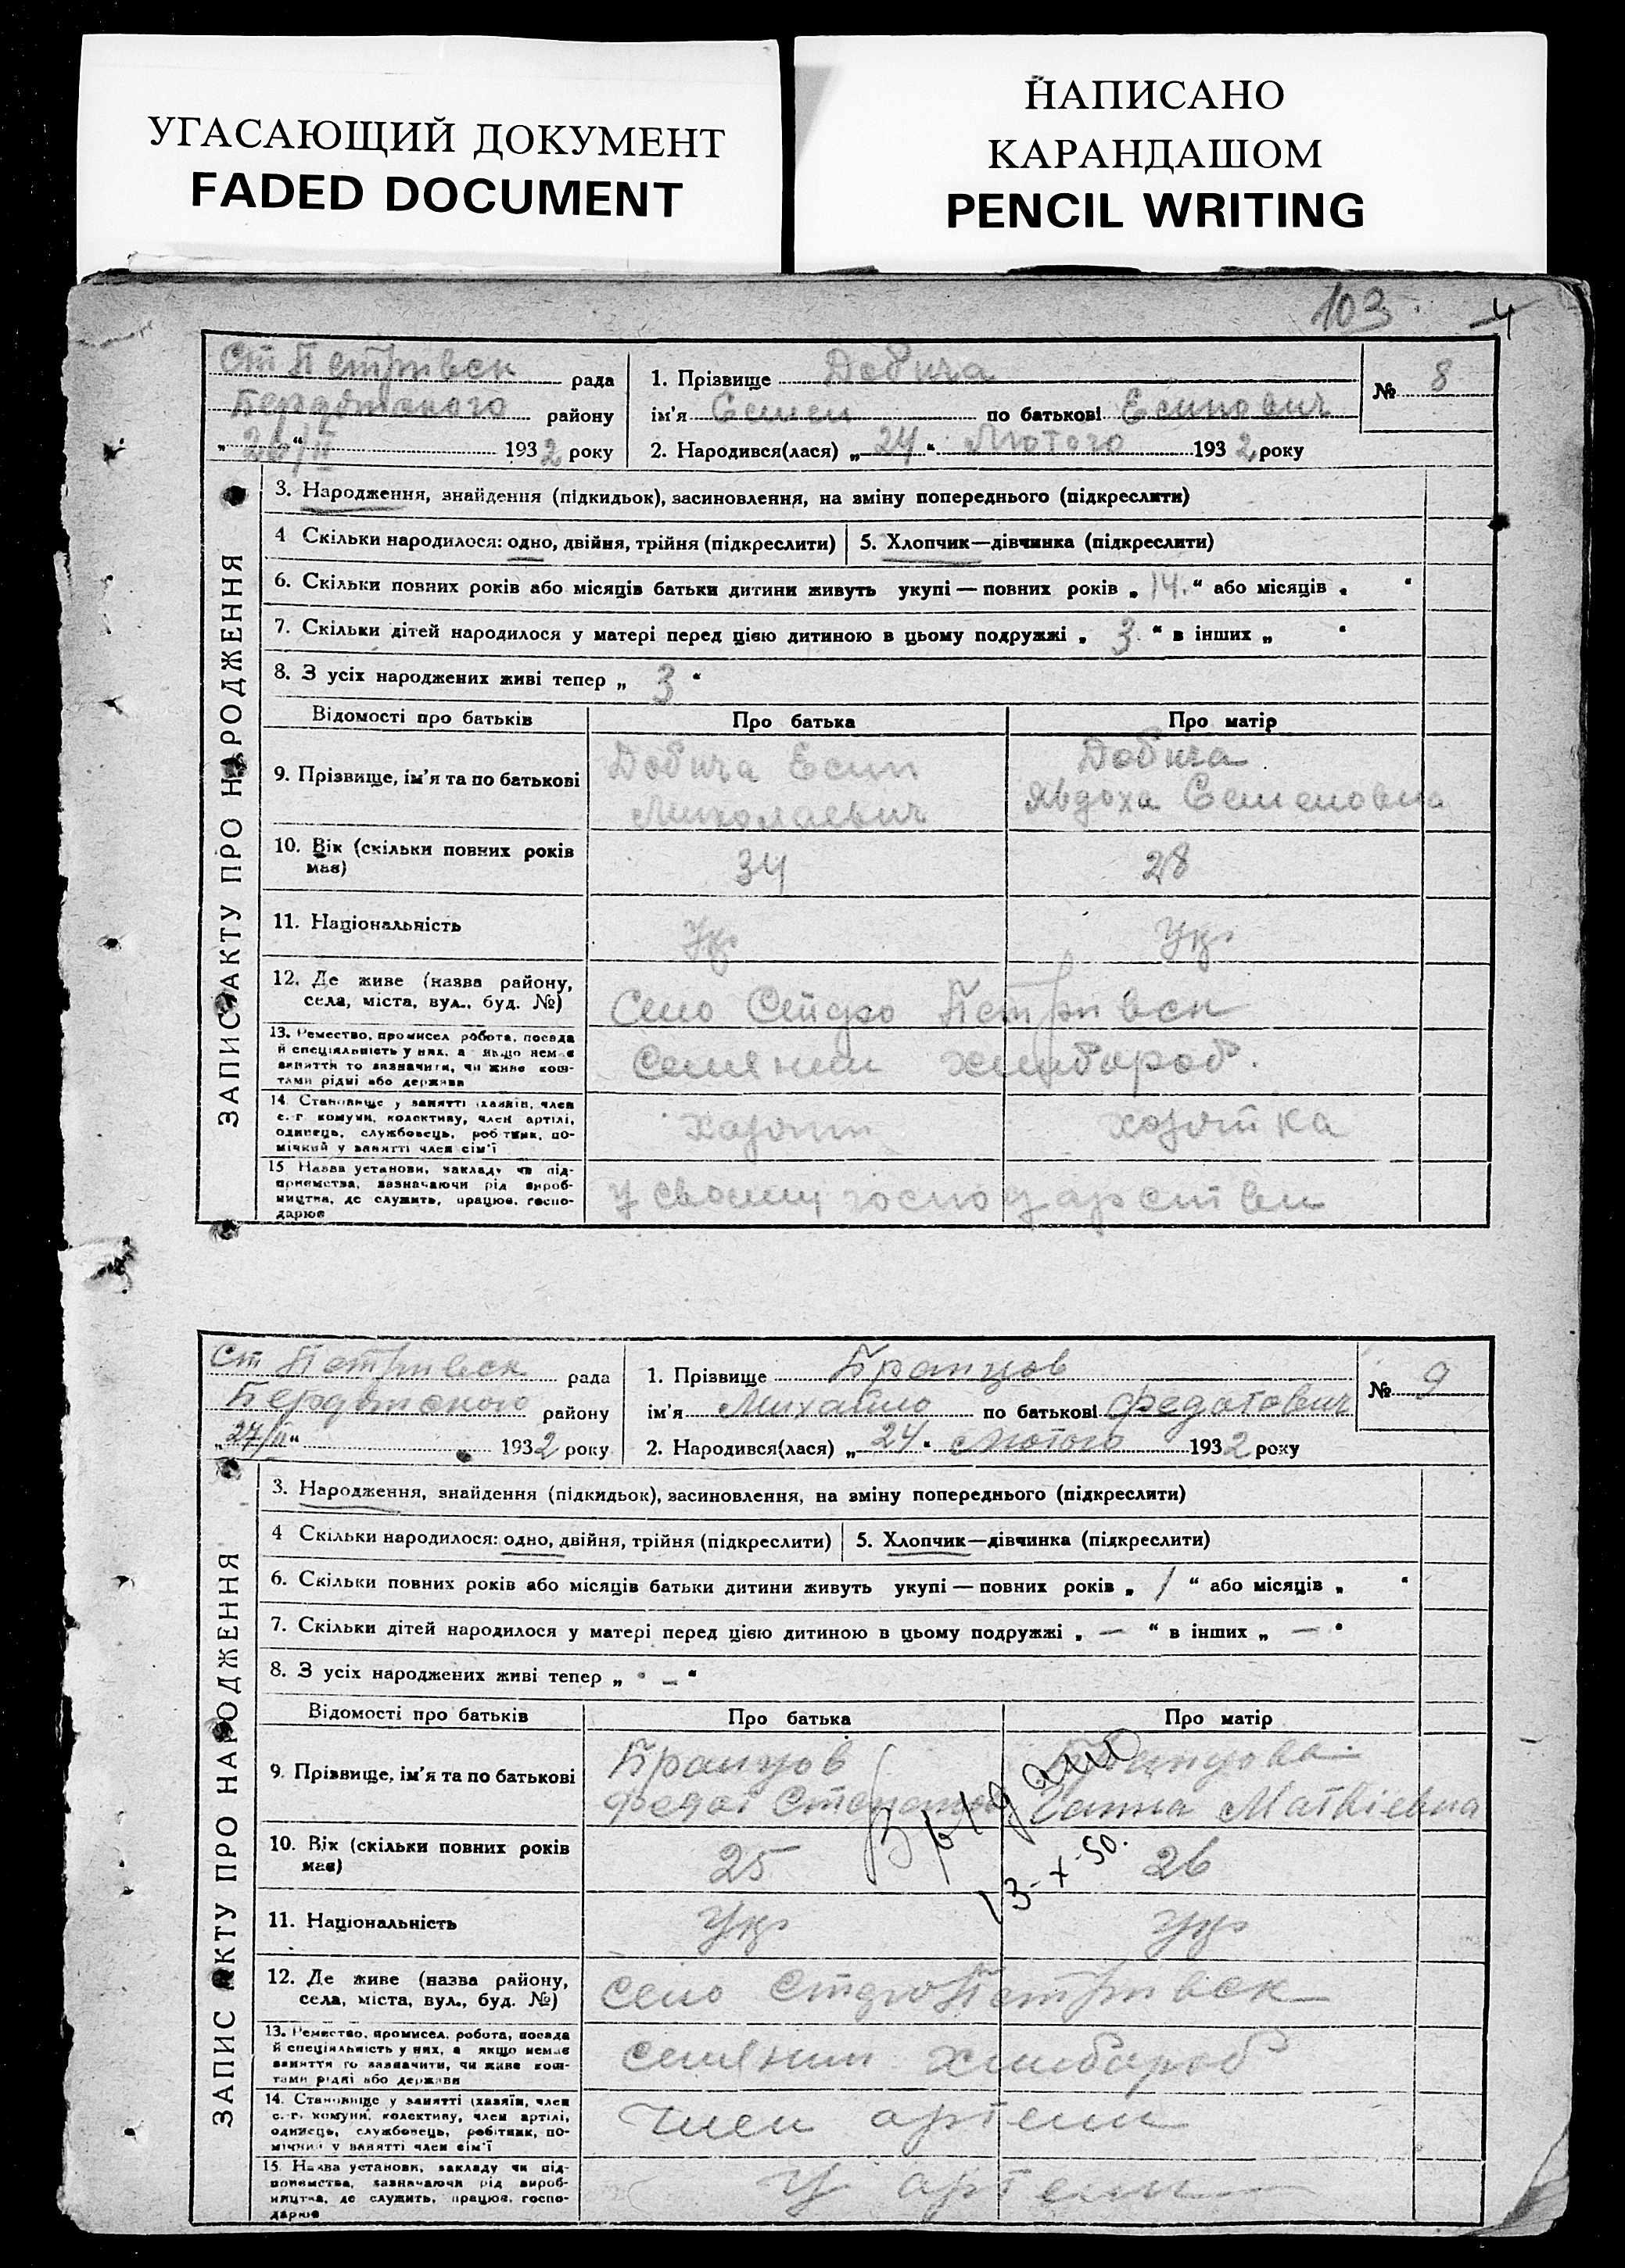 УГАСАЮЩИЙ ДОКУМЕНТ
FADED DOCUMENT
НАПИСАНО
КАРАНДАШОМ
PENCIL WRITING
103 4
Ст Петрівск рада
Бердянского району
„26/II“ 1932 року
1. Прізвище Добича
ім'я Семен по батькові Есипович
2. Народився(лася) „24“ Лютого 1932 року
№ 8
ЗАПИС АКТУ ПРО НАРОДЖЕННЯ
3. Народження, знайдення (підкидьок), засиновлення, на зміну попереднього (підкреслити)
4 Скільки народилося: одно, двійня, трійня (підкреслити) 5. Хлопчик—дівчинка (підкреслити)
6. Скільки повних років або місяців батьки дитини живуть укупі — повних років „14.“ або місяців „ “
7. Скільки дітей народилося у матері перед цією дитиною в цьому подружжі „3“ в інших „ “
8. З усіх народжених живі тепер „3“
Відомості про батьків Про батька Про матір
9. Прізвище, ім'я та по батькові
Добича Есип
Миколаевич
Добича
Явдоха Семеновна
10. Вік (скільки повних років
має)
34 28
11. Національність Укр Укр
12. Де живе (назва району,
села, міста, вул., буд. №)
Село Старо Петрівск
13. Ремество, промисел, робота, посада
й спеціяльність у них, а якщо немає
заняття то зазначити, чи живе кош-
тами рідні або держави
Селянин хлибороб.
14. Становище у занятті (хазяїн, член
с.-г. комуни, колективу, член артілі,
одинець, службовець, робітник, по-
мічний у занятті член сім'ї
хазяин хозяйка
15 Назва установи, закладу чи під-
приємства, зазначаючи рід вироб-
ництва, де служить, працює, госпо-
дарює
У своему господарстви
Ст Петрівск рада
Бердянского району
„27/II“ 1932 року
1. Прізвище Бранцов
ім'я Михайло по батькові Федотович
2. Народився(лася) „24“ Лютого 1932 року
№ 9
ЗАПИС АКТУ ПРО НАРОДЖЕННЯ
3. Народження, знайдення (підкидьок), засиновлення, на зміну попереднього (підкреслити)
4 Скільки народилося: одно, двійня, трійня (підкреслити) 5. Хлопчик—дівчинка (підкреслити)
6. Скільки повних років або місяців батьки дитини живуть укупі — повних років „1“ або місяців „ “
7. Скільки дітей народилося у матері перед цією дитиною в цьому подружжі „—“ в інших „—“
8. З усіх народжених живі тепер „—“
Відомості про батьків Про батька Про матір
9. Прізвище, ім'я та по батькові
Бранцов
Федот
Бранцова
Ганна Маткіевна
13-X-50.
10. Вік (скільки повних років
має)
25 26
11. Національність Укр Укр
12. Де живе (назва району,
села, міста, вул., буд. №)
Село Старо Петрівск
13. Ремество, промисел, робота, посада
й спеціяльність у них, а якщо немає
заняття то зазначити, чи живе кош-
тами рідні або держави
Селянин хлибороб
14. Становище у занятті (хазяїн, член
с.-г. комуни, колективу, член артілі,
одинець, службовець, робітник, по-
мічний у занятті член сім'ї
Член артели
15. Назва установи, закладу чи під-
приємства, зазначаючи рід вироб-
ництва, де служить, працює, госпо-
дарює
У артели